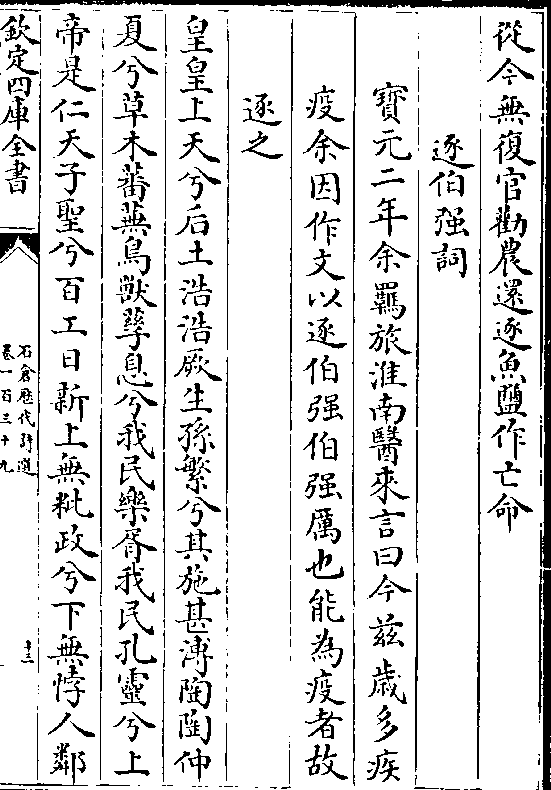 從今無復官勸農還逐魚鹽作亡命
逐伯强詞
寶元二年余羈旅淮南醫來言曰今兹歲多疾
疫余因作文以逐伯强伯强厲也能為疫者故
逐之
皇皇上天兮后土浩浩厥生孫繁兮其施甚溥陶陶仲
夏兮草木蕃蕪鳥獸孳息兮我民樂胥我民孔靈兮上
帝是仁天子聖兮百工日新上無粃政兮下無悖人鄰
欽定四庫全書
石倉歷代詩選
卷一百三十九
十三